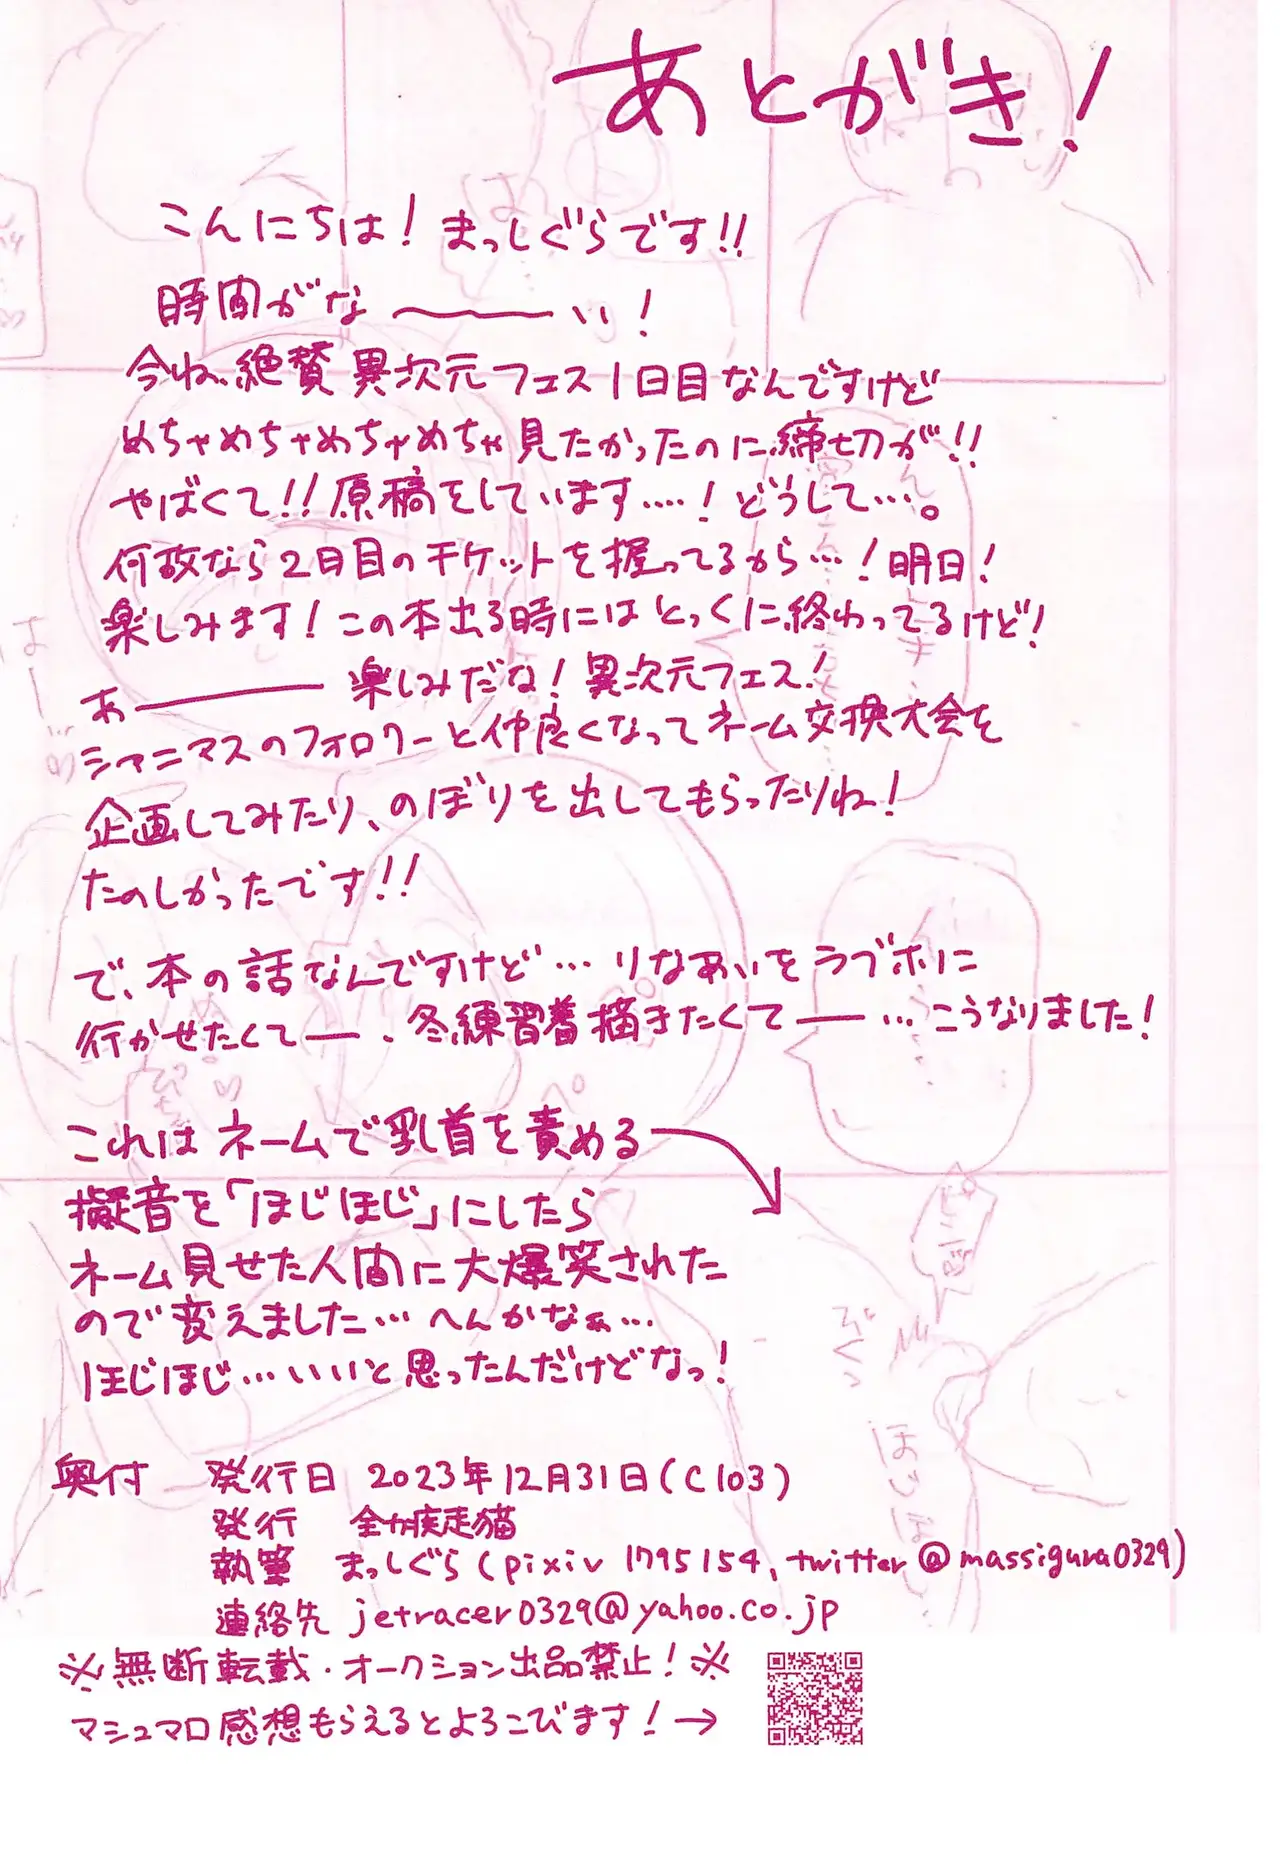 あとがき!
こんにちは! まっしぐらです!!
時間がな〜い!
今ね、絶賛 異次元フェス1日目なんですけど
めちゃめちゃめちゃめちゃ見たかったのに締切が!!
やばくて!! 原稿をしています…..! どうして…。
何故なら2日目のチケットを握ってるから…! 明日!
楽しみます! この本出る時にはとっくに終わってるけど!
あ―――― 楽しみだな! 異次元フェス!
シャニマスのフォロワーと仲良くなってネーム交換大会を
企画してみたり、のぼりを出してもらったりね!
たのしかったです!!
で、本の話なんですけど… りなあいをラブホに
行かせたくてー、冬練習着描きたくてー… こうなりました!
これはネームで乳首を責める
擬音を「ほじほじ」にしたら
ネーム見せた人間に大爆笑された
ので変えました… へんかなぁ…
ほじほじ…いいと思ったんだけどなっ!
びくっ
ほじほじ
奥付 発行日 2023年12月31日(C103)
発行 全力疾走猫
執筆 まっしぐら(pixiv 1795154、twitter@massigura0329)
連絡先 jetracer0329@yahoo.co.jp
※無断転載・オークション出品禁止!※
マシュマロ感想もらえるとよろこびます!→